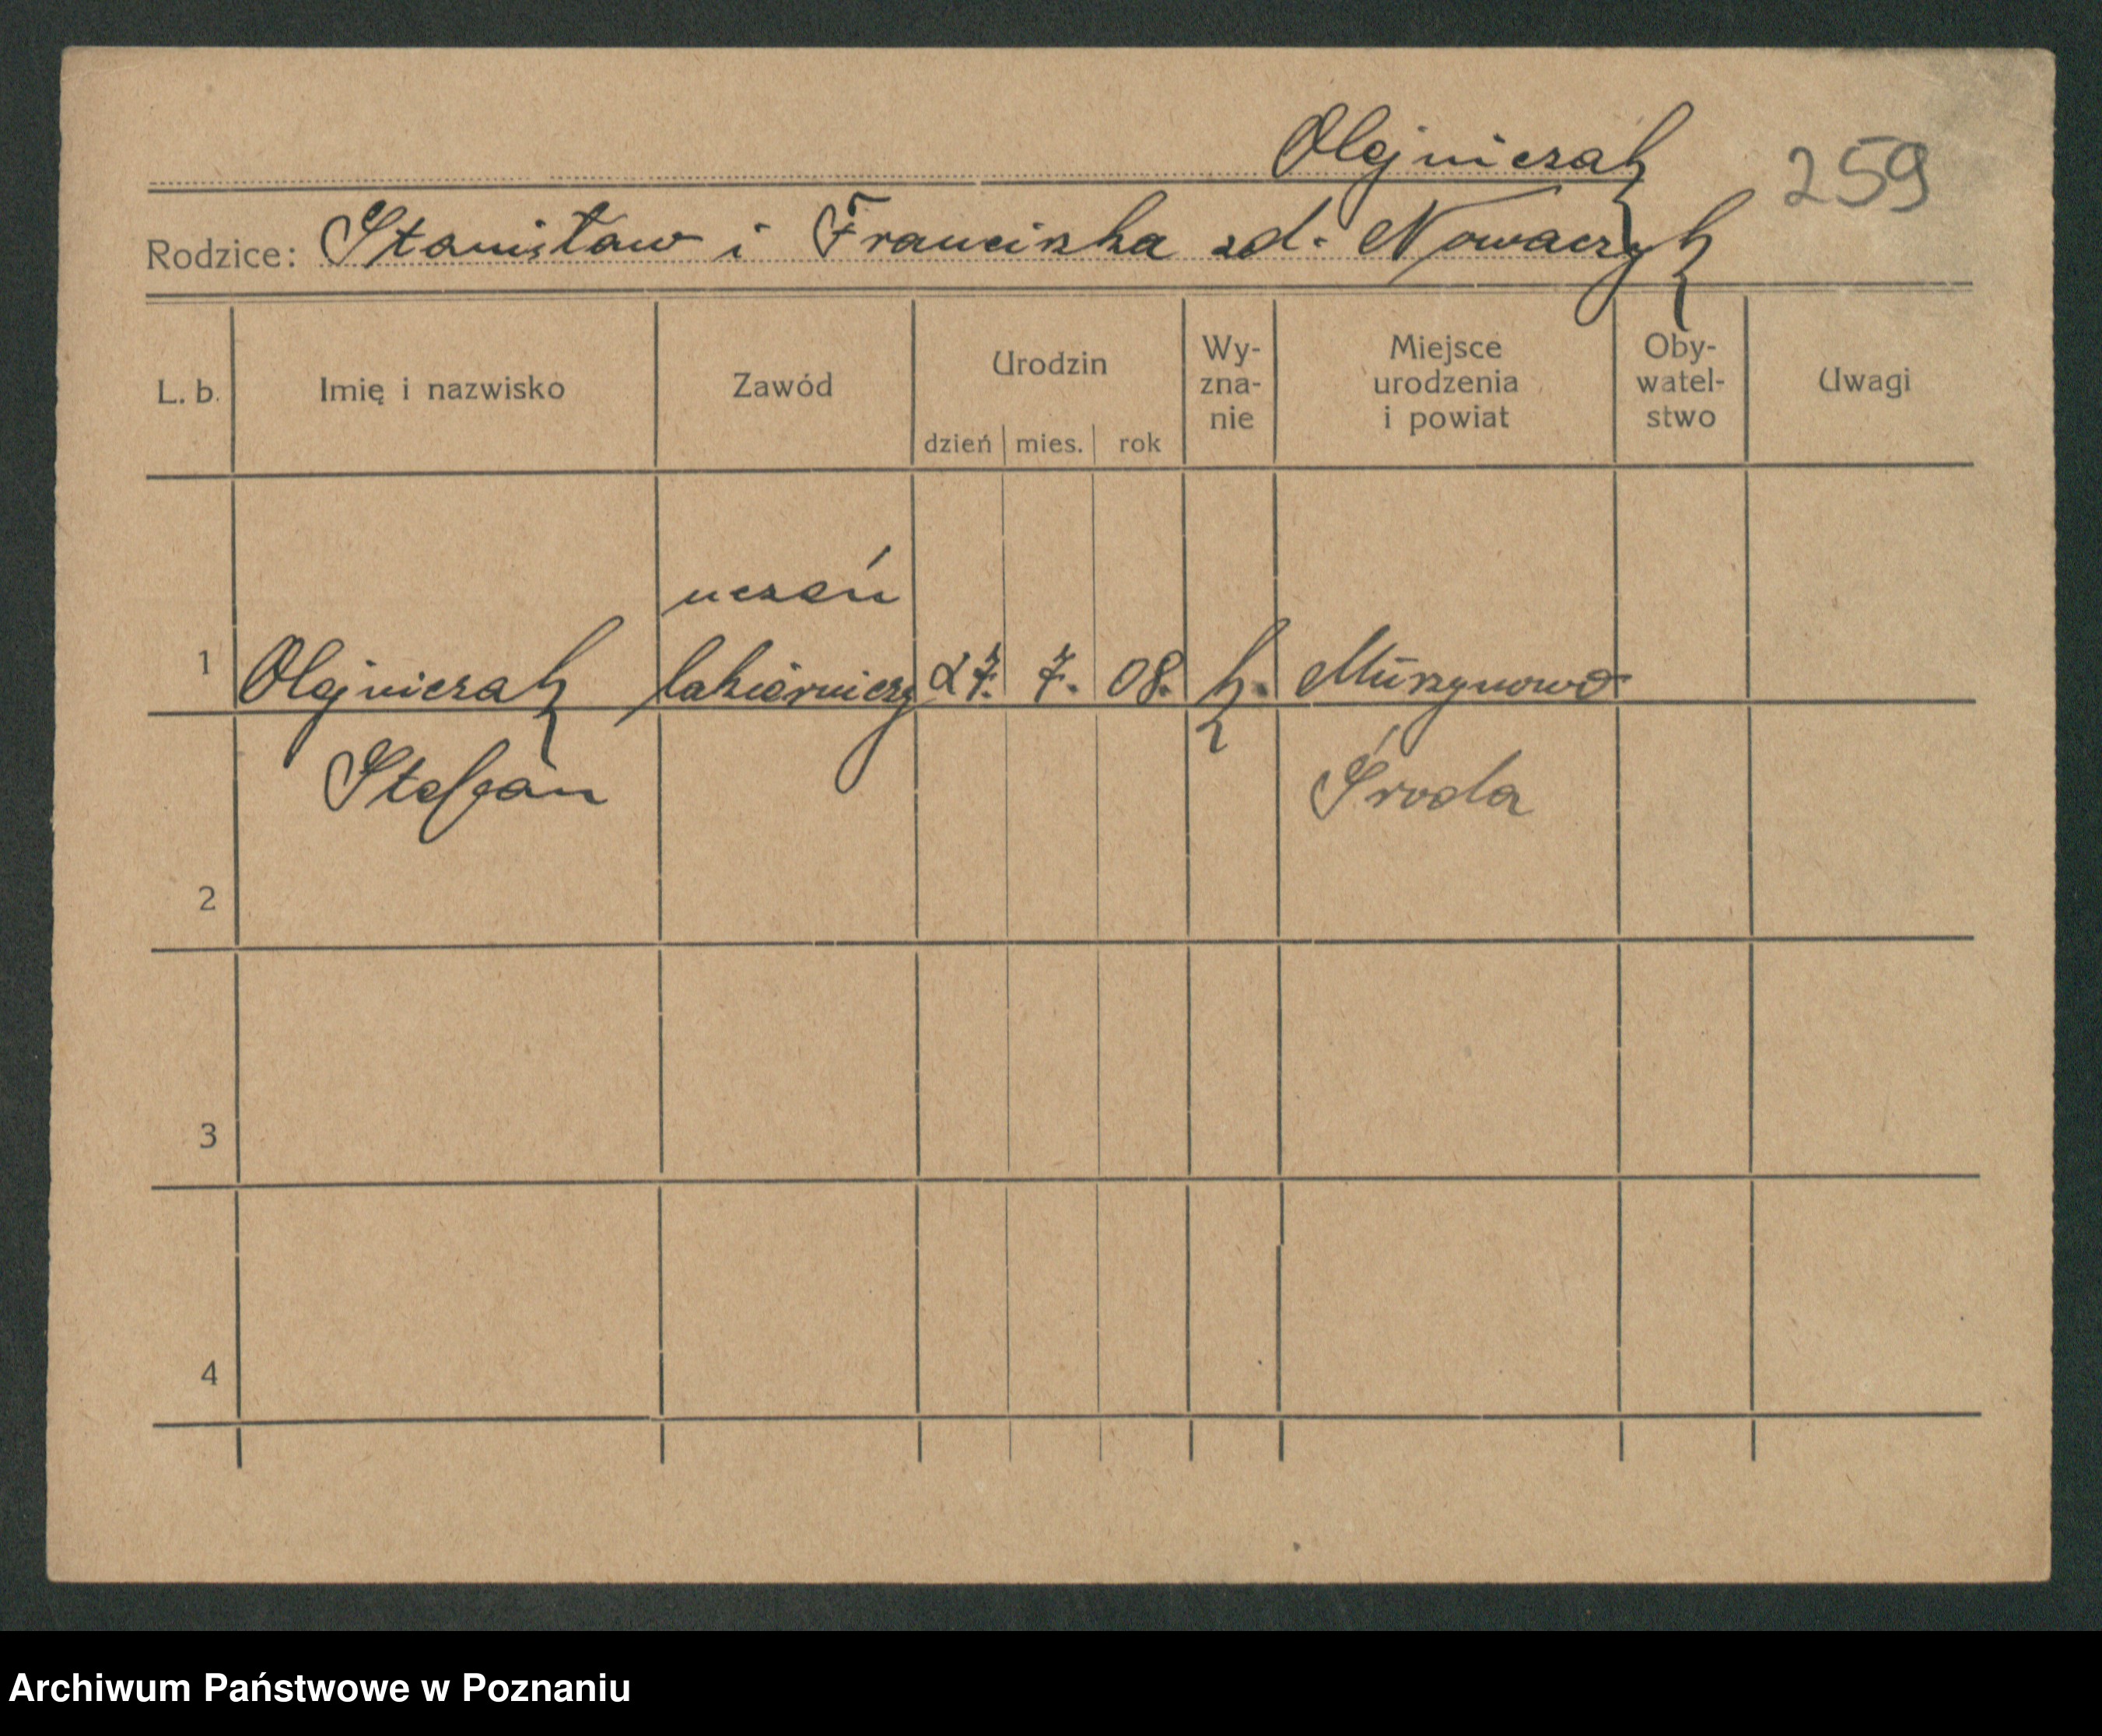 Olejniczak
259
Rodzice: Stanisław i Franciszka zd. Nowaczyk
L. b. Imię i nazwisko Zawód Urodzin dzień mies. rok Wy-zna-nie Miejsce urodzenia i powiat Oby-watel-stwo Uwagi
uczeń
1 Olejniczak lakierniczy 27. 7. 08. k. Murzynowo
Stefan Środa
2
3
4
Archiwum Państwowe w Poznaniu